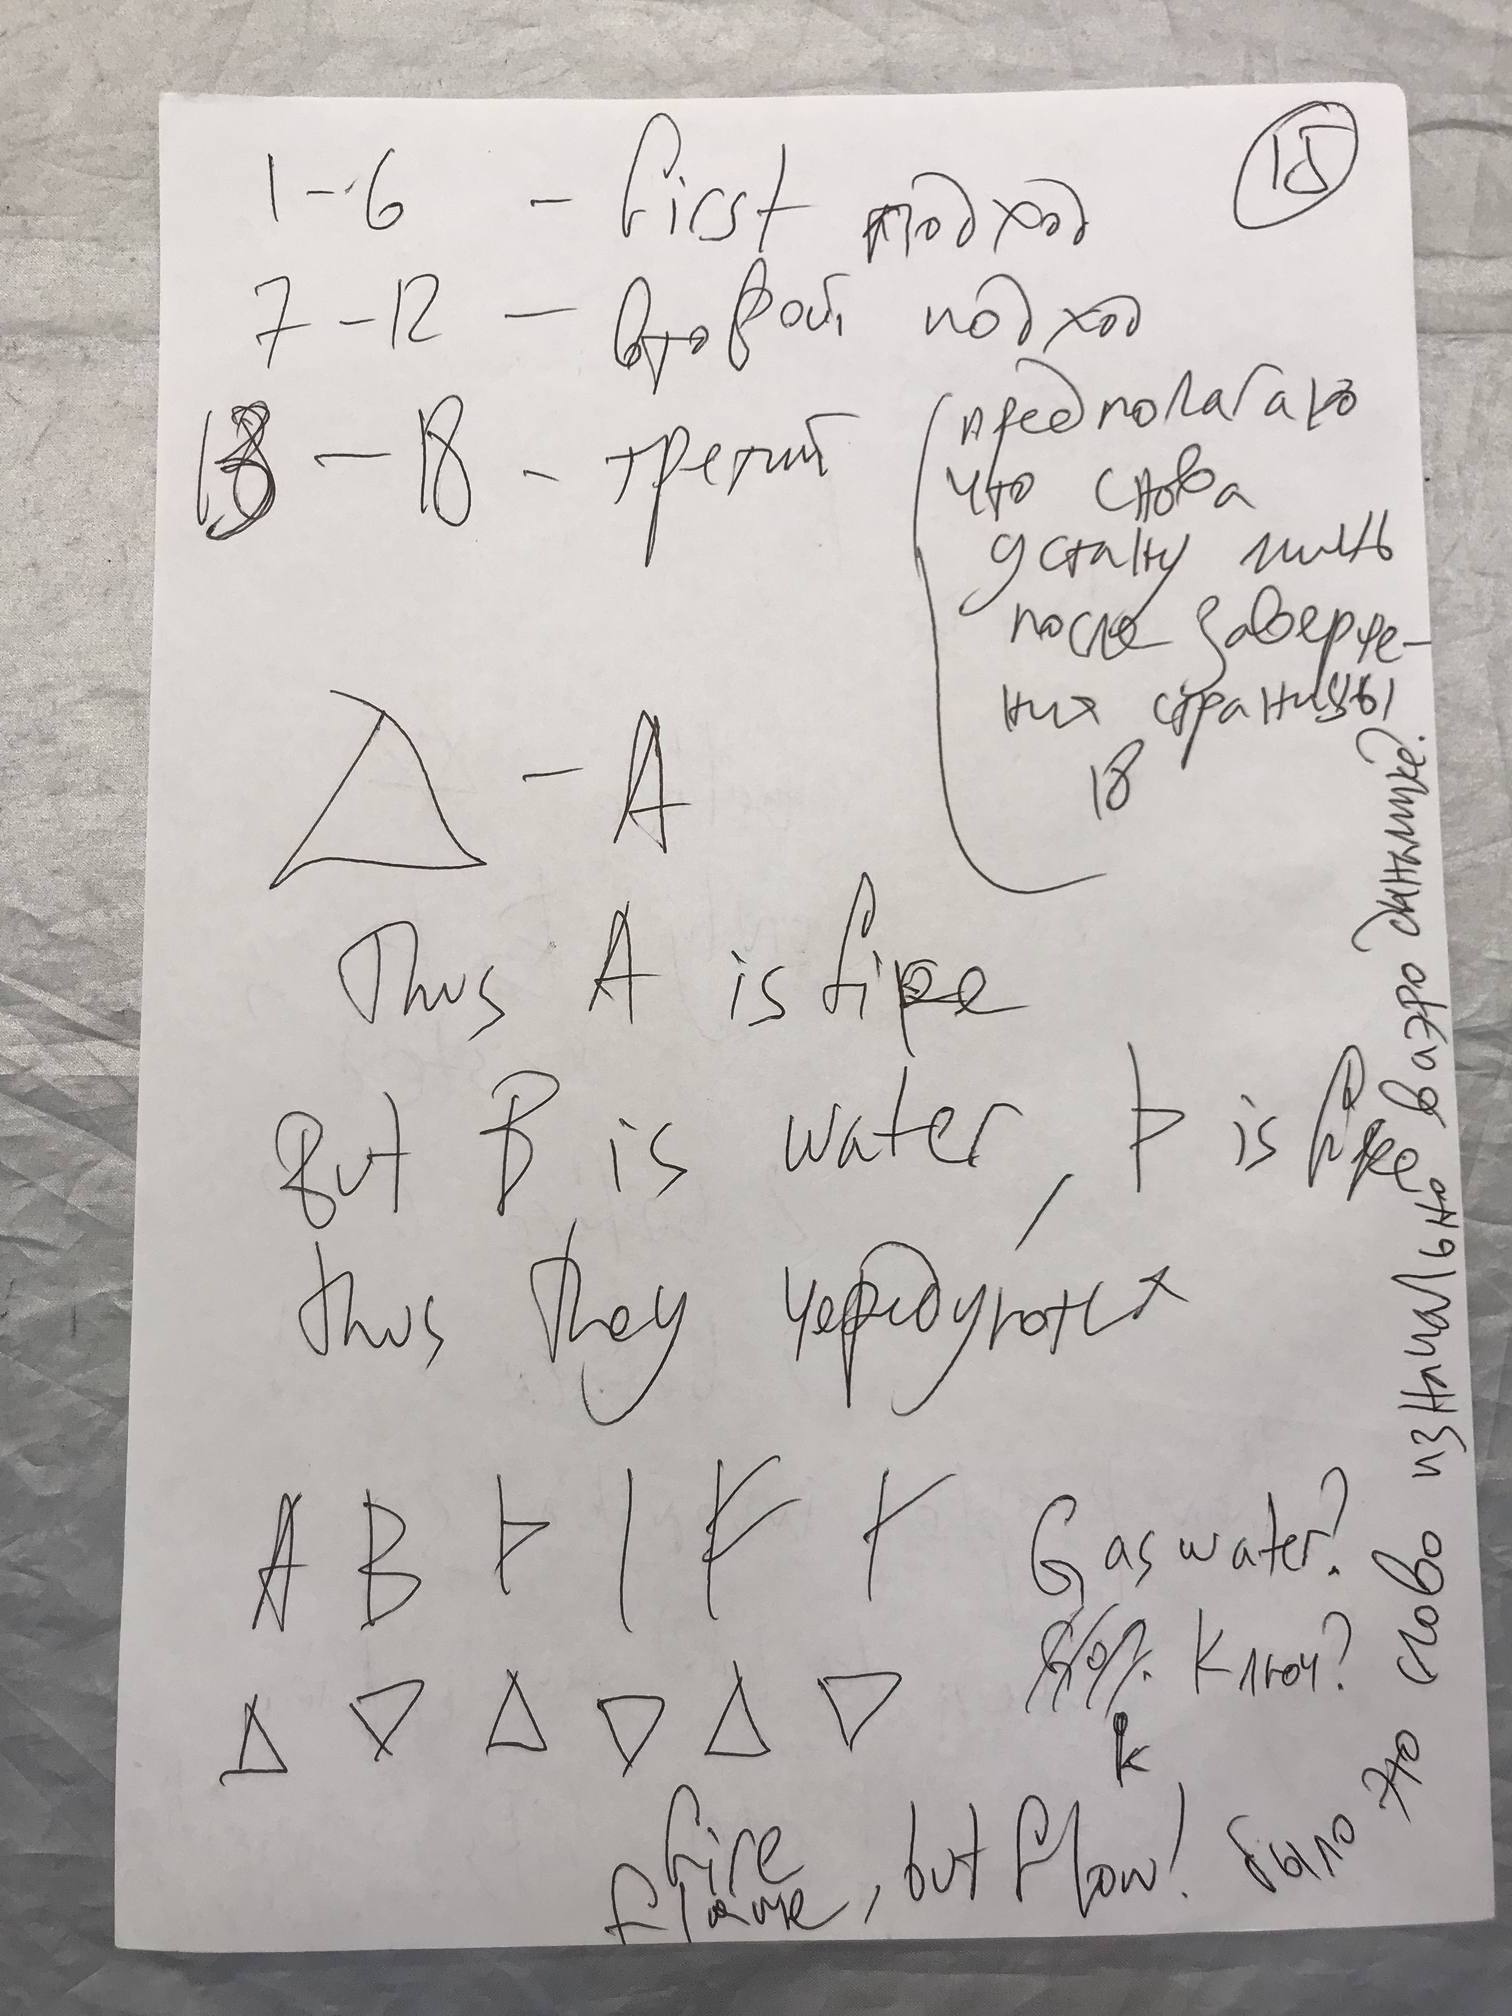 15
1-6 - first подход
7-12 - второй подход
13 - 18 - третий
предполагаю
что снова
устану лишь
после заверше-
ния страницы
18
△ - A
Thus A is fire
But B is water, Ͱ is fire
thus they чередуются
A B Ͱ |
△ ▽ △ ▽ △ ▽
Gas water?
Ключ?
k
fire
flame, but flow!
было это слово изначально в аэро даныцке?